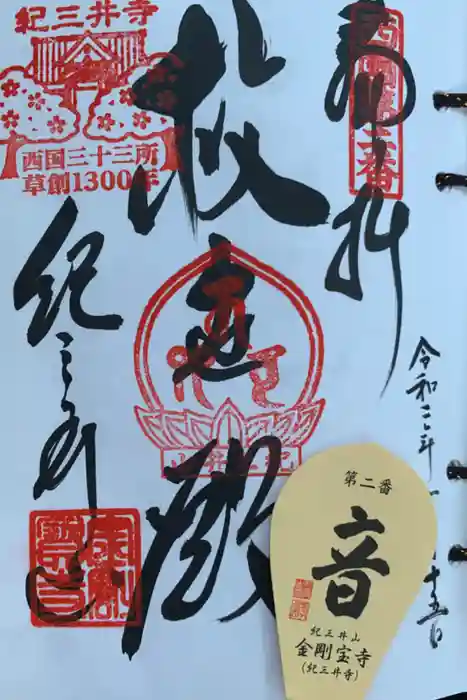 奉拝
西国第二番
令和二年
十五日
救世殿
紀三井寺
紀三井寺
西国三十三所
草創1300年
紀三井山
第二番
音
紀三井山
金剛宝寺
(紀三井寺)